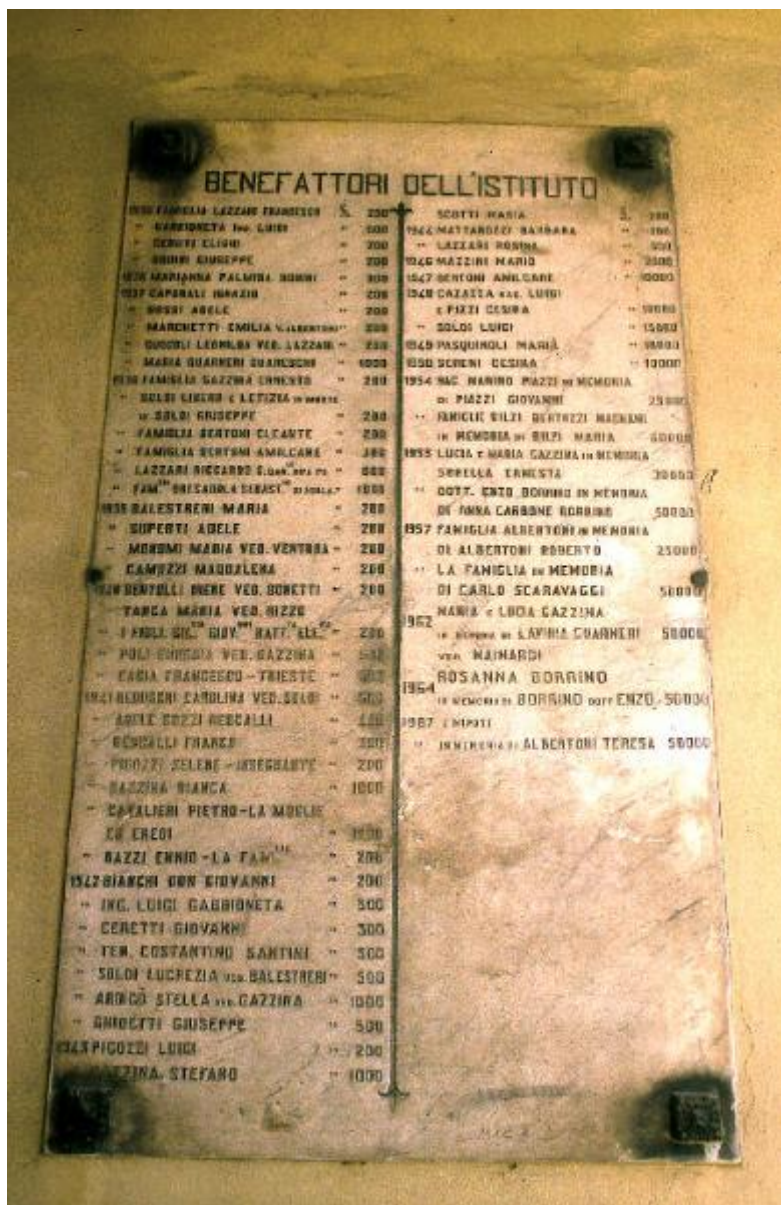 BENEFATTORI DELL'ISTITUTO
FAMIGLIA LAZZARI FRANCESCO £. 200
" GABBIONETA ING. LUIGI "
" CERUTI "
" GIUSEPPE " 200
MARIANNA PALMIRA "
1937 CAPORALI IGNAZIO " 200
" ROSSI ADELE " 200
" MARCHETTI EMILIA V. ALBERTONI " 200
" LEONILDA VED. LAZZARI " 200
" MARIA GUARNERI GUARESCHI " 1000
FAMIGLIA GAZZINA ERNESTO " 200
" SOLDI LIBERO E LETIZIA IN MORTE
DI SOLDI GIUSEPPE " 200
" FAMIGLIA BERTONI CLEANTE " 200
" FAMIGLIA BERTONI AMILCARE "
" LAZZARI RICCARDO
" 1000
BALESTRERI MARIA " 200
" SUPERTI ADELE " 200
" MARIA VED. VENTURA " 200
" CAMOZZI MADDALENA " 200
BERTOLLI IRENE VED. BONETTI " 200
TANCA MARIA VED. RIZZO
" I FIGLI " 200
" POLI VED. GAZZINA "
" FRANCESCO - TRIESTE "
CAROLINA VED. SOLDI " 500
" ADELE
" FRANCO "
" PIGOZZI SELENE - INSEGNANTE " 200
" GAZZINA BIANCA " 1000
" CAVALIERI PIETRO - LA MOGLIE
ED EREDI "
" BAZZI ENNIO - LA FAM.LIA " 200
1942 BIANCHI DON GIOVANNI " 200
" ING. LUIGI GABBIONETA " 500
" CERETTI GIOVANNI "
" TEN. COSTANTINO SANTINI " 500
" SOLDI LUCREZIA VED. BALESTRERI " 500
" ARRIGÒ STELLA VED. GAZZINA " 1000
" GHIDETTI GIUSEPPE " 500
1943 PIGOZZI LUIGI " 200
GAZZINA STEFANO " 1000
SCOTTI MARIA £. 200
1944 MATTAROZZI BARBARA "
" LAZZARI ROSINA " 500
1946 MAZZINI MARIO "
1947 BERTONI AMILCARE " 10000
1948 RAG. LUIGI
E PIZZI CESIRA "
" SOLDI LUIGI " 15000
1949 MARIA " 10000
1950 SERENI CESIRA " 10000
1954 RAG. NANINO PIAZZI IN MEMORIA
DI PIAZZI GIOVANNI 25000
" FAMIGLIE BILZI BERTOZZI MAGNANI
IN MEMORIA DI BILZI MARIA
1955 LUCIA E MARIA GAZZINA IN MEMORIA
SORELLA ERNESTA 30000
" DOTT. ENZO BORRINO IN MEMORIA
DI ANNA CARBONE BORRINO 50000
1957 FAMIGLIA ALBERTONI IN MEMORIA
DI ALBERTONI ROBERTO 25000
" LA FAMIGLIA IN MEMORIA
DI CARLO SCARAVAGGI 50000
1962 MARIA E LUCIA GAZZINA
IN MEMORIA DI LAVINIA GUARNERI 50000
VED. MAINARDI
1964 ROSANNA BORRINO
IN MEMORIA DI BORRINO DOTT ENZO - 50000
1967 I NIPOTI
" IN MEMORIA DI ALBERTONI TERESA 50000